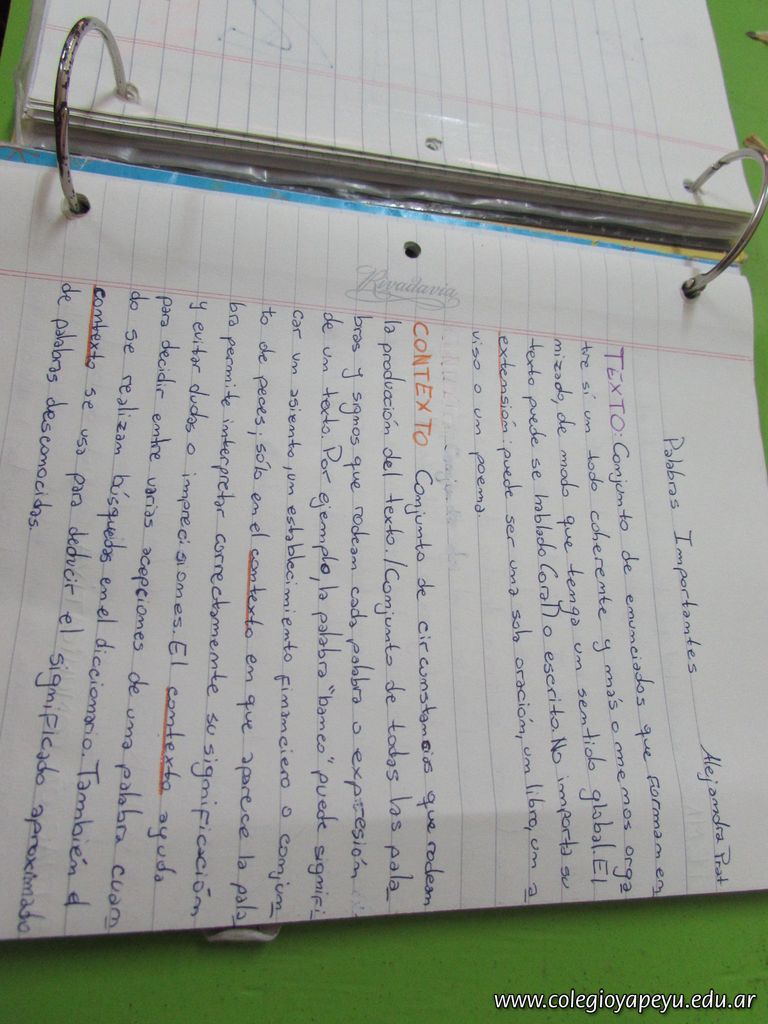 Alejandra Prat
Palabras Importantes
TEXTO: Conjunto de enunciados que forman en
tre sí un todo coherente y más o menos orga
nizado, de modo que tenga un sentido global. El
texto puede se hablado (oral) o escrito. No importa su
extensión; puede ser una sola oración, un libro, un a
viso o un poema.
CONTEXTO Conjunto de circunstancias que rodean
la producción del texto. / Conjunto de todas las pala
bras y signos que rodean cada palabra o expresión
de un texto. Por ejemplo, la palabra "banco" puede signifi
car un asiento, un establecimiento financiero o conjun
to de peces; sólo en el contexto en que aparece la pala
bra permite interpretar correctamente su significación
y evitar dudas o imprecisiones. El contexto ayuda
para decidir entre varias acepciones de una palabra cuan
do se realizan búsquedas en el diccionario. También el
contexto se usa para deducir el significado aproximado
de palabras desconocidas.
Rivadavia
www.colegioyapeyu.edu.ar